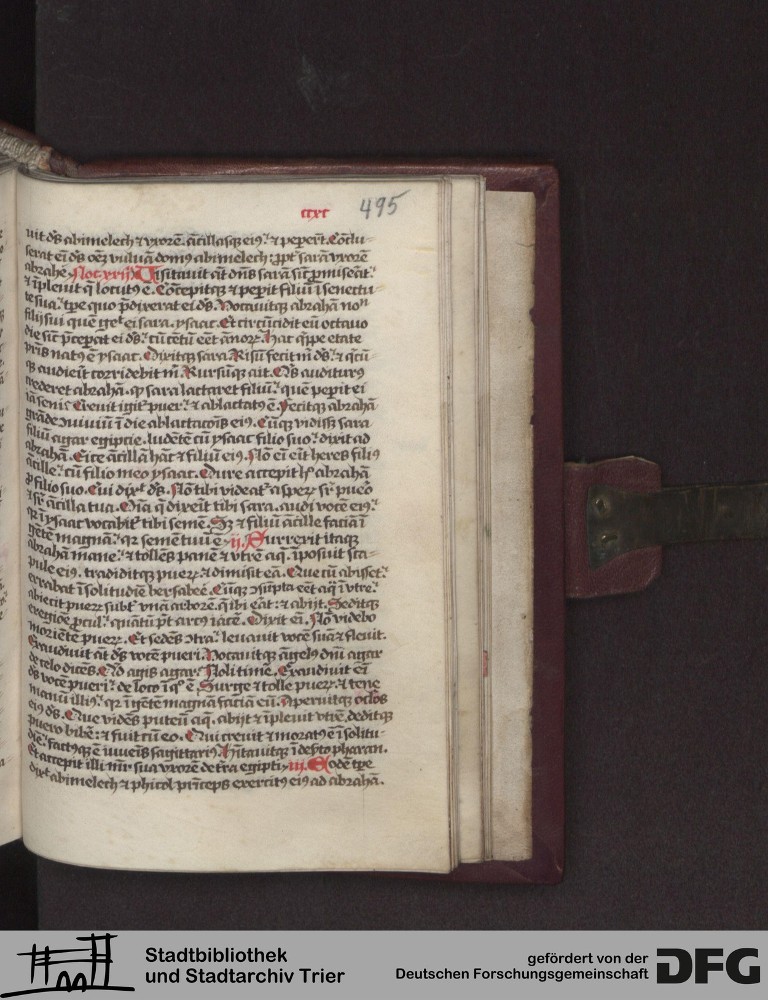 ccxc 495
uit ds abimelech ⁊ vxorē. ācillasq; ei9. ⁊ peperēt. Cōclu-
serat ei ds oēȝ vuluā domꝰ abimelech. ꝓpt sarā vxorē
abrahe. Noc. xxij. Visitauit aūt dn̄s sarā sic̄ ꝓmiserat.
⁊ īpleuit q̄ locutꝰ ē. Cōcepitq; ⁊ peꝑit filiū ī senectu-
te sua. tꝑe quo p̄dixerat ei ds. Vocauitq; abrahā non
filij sui quē gēt ei sara. ysaac. Et circūcidit eū octauo
die sic̄ p̄ceꝑat ei ds. cū cētū eēt ānoꝝ. Hac q̄ppe etate
pris natꝰ ē ysaac. Dixitq; sara. Risū fecit m̄ ds. ⁊ q̄cū-
q; audieīt corridebit m̄. Rursūq; ait. Q̄s auditurꝰ
crederet abrahā. ꝙ sara lactaret filiū. quē peperit ei
iā seni. Creuit igit puer. ⁊ ablactatꝰ ē. Fecitq; abrahā
grāde ↄuiuiū ī die ablactacōis eiꝰ. Cūq; vidiss; sara
filiū agar egipcie. ludētē cū ysaac filio suo. dixit ad
abrahā. Eice ācillā hāc ⁊ filiū eiꝰ. Nō ei eīt heres filiꝰ
ācille. cū filio meo ysaac. Dure accepit h̄ abrahā
ꝓ filio suo. Cui dix̄t ds. Nō tibi videat̄ asperȝ sr̄ pueo
⁊ sr̄ ācilla tua. Oīa q̄ dixeīt tibi sara. audi vocē eiꝰ.
qr ī ysaac vocabit̄ tibi semē. Sȝ ⁊ filiū ācille faciā ī
gētē magnā. qr semē tuū ē. ij. Surrexit itaq;
abrahā mane. ⁊ tollēs panē ⁊ vtrē aq̄. īposuit sca-
pule eiꝰ. tradiditq; pueꝝ. ⁊ dimisit eā. Que cū abisset.
errabat ī solitudīe bersabee. Cūq; ↄsūpta eēt aq̄ ī vtre.
abiecit pueꝝ subt̄ vnā arborē. q̄ ibi eāt. ⁊ abijt. Seditq;
exegiōe ꝓcul. quātū p̄t arcꝰ iacē. Dixit ei. Nō videbo
moriētē pueꝝ. Et sedēs ↄtra. leuauit vocē suā ⁊ fleuit.
Exaudiuit aūt ds vocē pueri. Vocauitq; āgelꝰ dn̄i agar
de celo dicēs. Q̄d agis agar. Noli timē. Exaudiuit ei
ds vocē pueri. de loco ī q̄ ē. Surge ⁊ tolle pueꝝ. ⁊ tene
manū illiꝰ. qr ī gētē magnā faciā eū. Aperuitq; oclōs
eiꝰ ds. Que vidēs puteū aq̄. abijt ⁊ īpleuit vtrē. deditq;
puero bibē. ⁊ fuit cū eo. Qui creuit ⁊ moratꝰ ē ī solitu-
die. factꝰq; ē iuueīs sagittariꝰ. H̄itauitq; ī deserto pharan.
Et accepit illi mr̄ sua vxorē de tr̄a egipti. iij. Eodē tꝑe
dix̄t abimelech ⁊ phicol prīceps exercitꝰ eiꝰ ad abrahā.
Stadtbibliothek
und Stadtarchiv Trier
gefördert von der
Deutschen Forschungsgemeinschaft
DFG